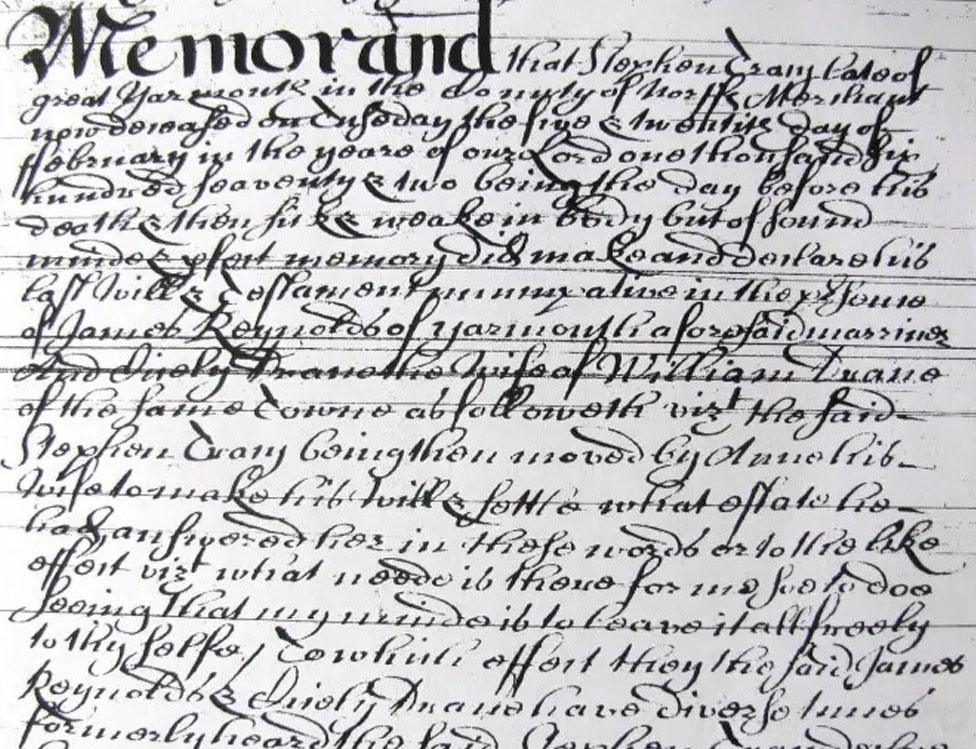 Memorand that Stephen Tracy late of
great Yarmouth in the County of Norff Merchant
now deceased on Tuseday the five & twentith day of
ffebruary in the yeare of our Lord one thousand six
hundred seaventy & two being the day before his
death & then sicke & weake in body but of sound
minde & pfect memory did make and declare his
last Will & Testament nuncupative in the psence
of James Reynolds of yarmouth aforesaid marriner
And Duane the Wife of William Duane
of the same Towne as followeth vizt the said
Stephen Tracy being then moved by Anne his
Wife to make his Will & settle what estate he
had answered her in these words or to the like
effect vizt what neede is there for me soe to doe
seeing that my minde is to leave it all freely
to thy selfe / To which effect they the said James
Reynolds & Duane have diverse times
formerly heard the said Stephen